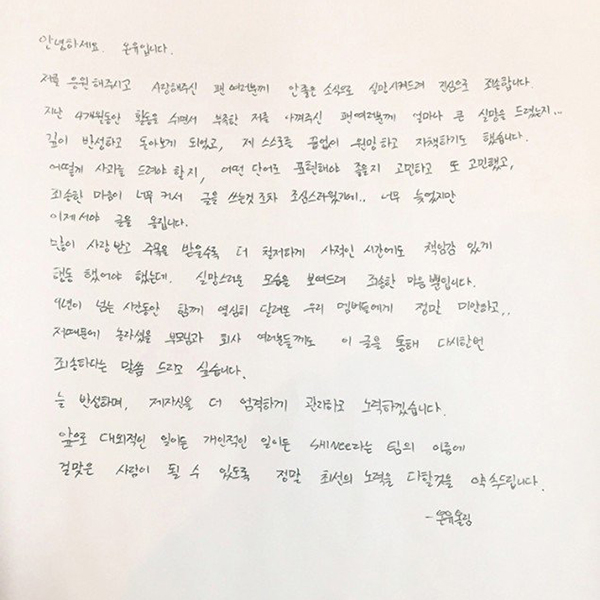 안녕하세요. 온유입니다.
저를 응원해주시고 사랑해주신 팬여러분께 안좋은 소식으로 실망시켜드려 진심으로 죄송합니다.
지난 4개월동안 활동을 쉬면서 부족한 저를 아껴주신 팬여러분께 얼마나 큰 실망을 드렸는지...
깊이 반성하고 돌아보게 되었고, 제 스스로를 끊임없이 원망하고 자책하기도 했습니다.
어떻게 사과를 드려야 할지, 어떤 단어로 표현해야 좋을지 고민하고 또 고민했고,
죄송한 마음이 너무 커서 글을 쓰는것 조차 조심스러웠기에.. 너무 늦었지만
이제서야 글을 올립니다.
많이 사랑받고 주목을 받을수록 더 철저하게 사적인 시간에도 책임감 있게
행동 했어야 했는데. 실망스러운 모습을 보여드려 죄송한 마음 뿐입니다.
9년이 넘는 시간동안 함께 열심히 달려온 우리 멤버들에게 정말 미안하고,,
저때문에 놀라셨을 부모님과 회사 여러분들께도 이 글을 통해 다시한번
죄송하다는 말씀 드리고 싶습니다.
늘 반성하며, 제자신을 더 엄격하게 관리하고 노력하겠습니다.
앞으로 대외적인 일이든 개인적인 일이든 SHINee라는 팀의 이름에
걸맞은 사람이 될 수 있도록 정말 최선의 노력을 다할것을 약속드립니다.
-온유올림